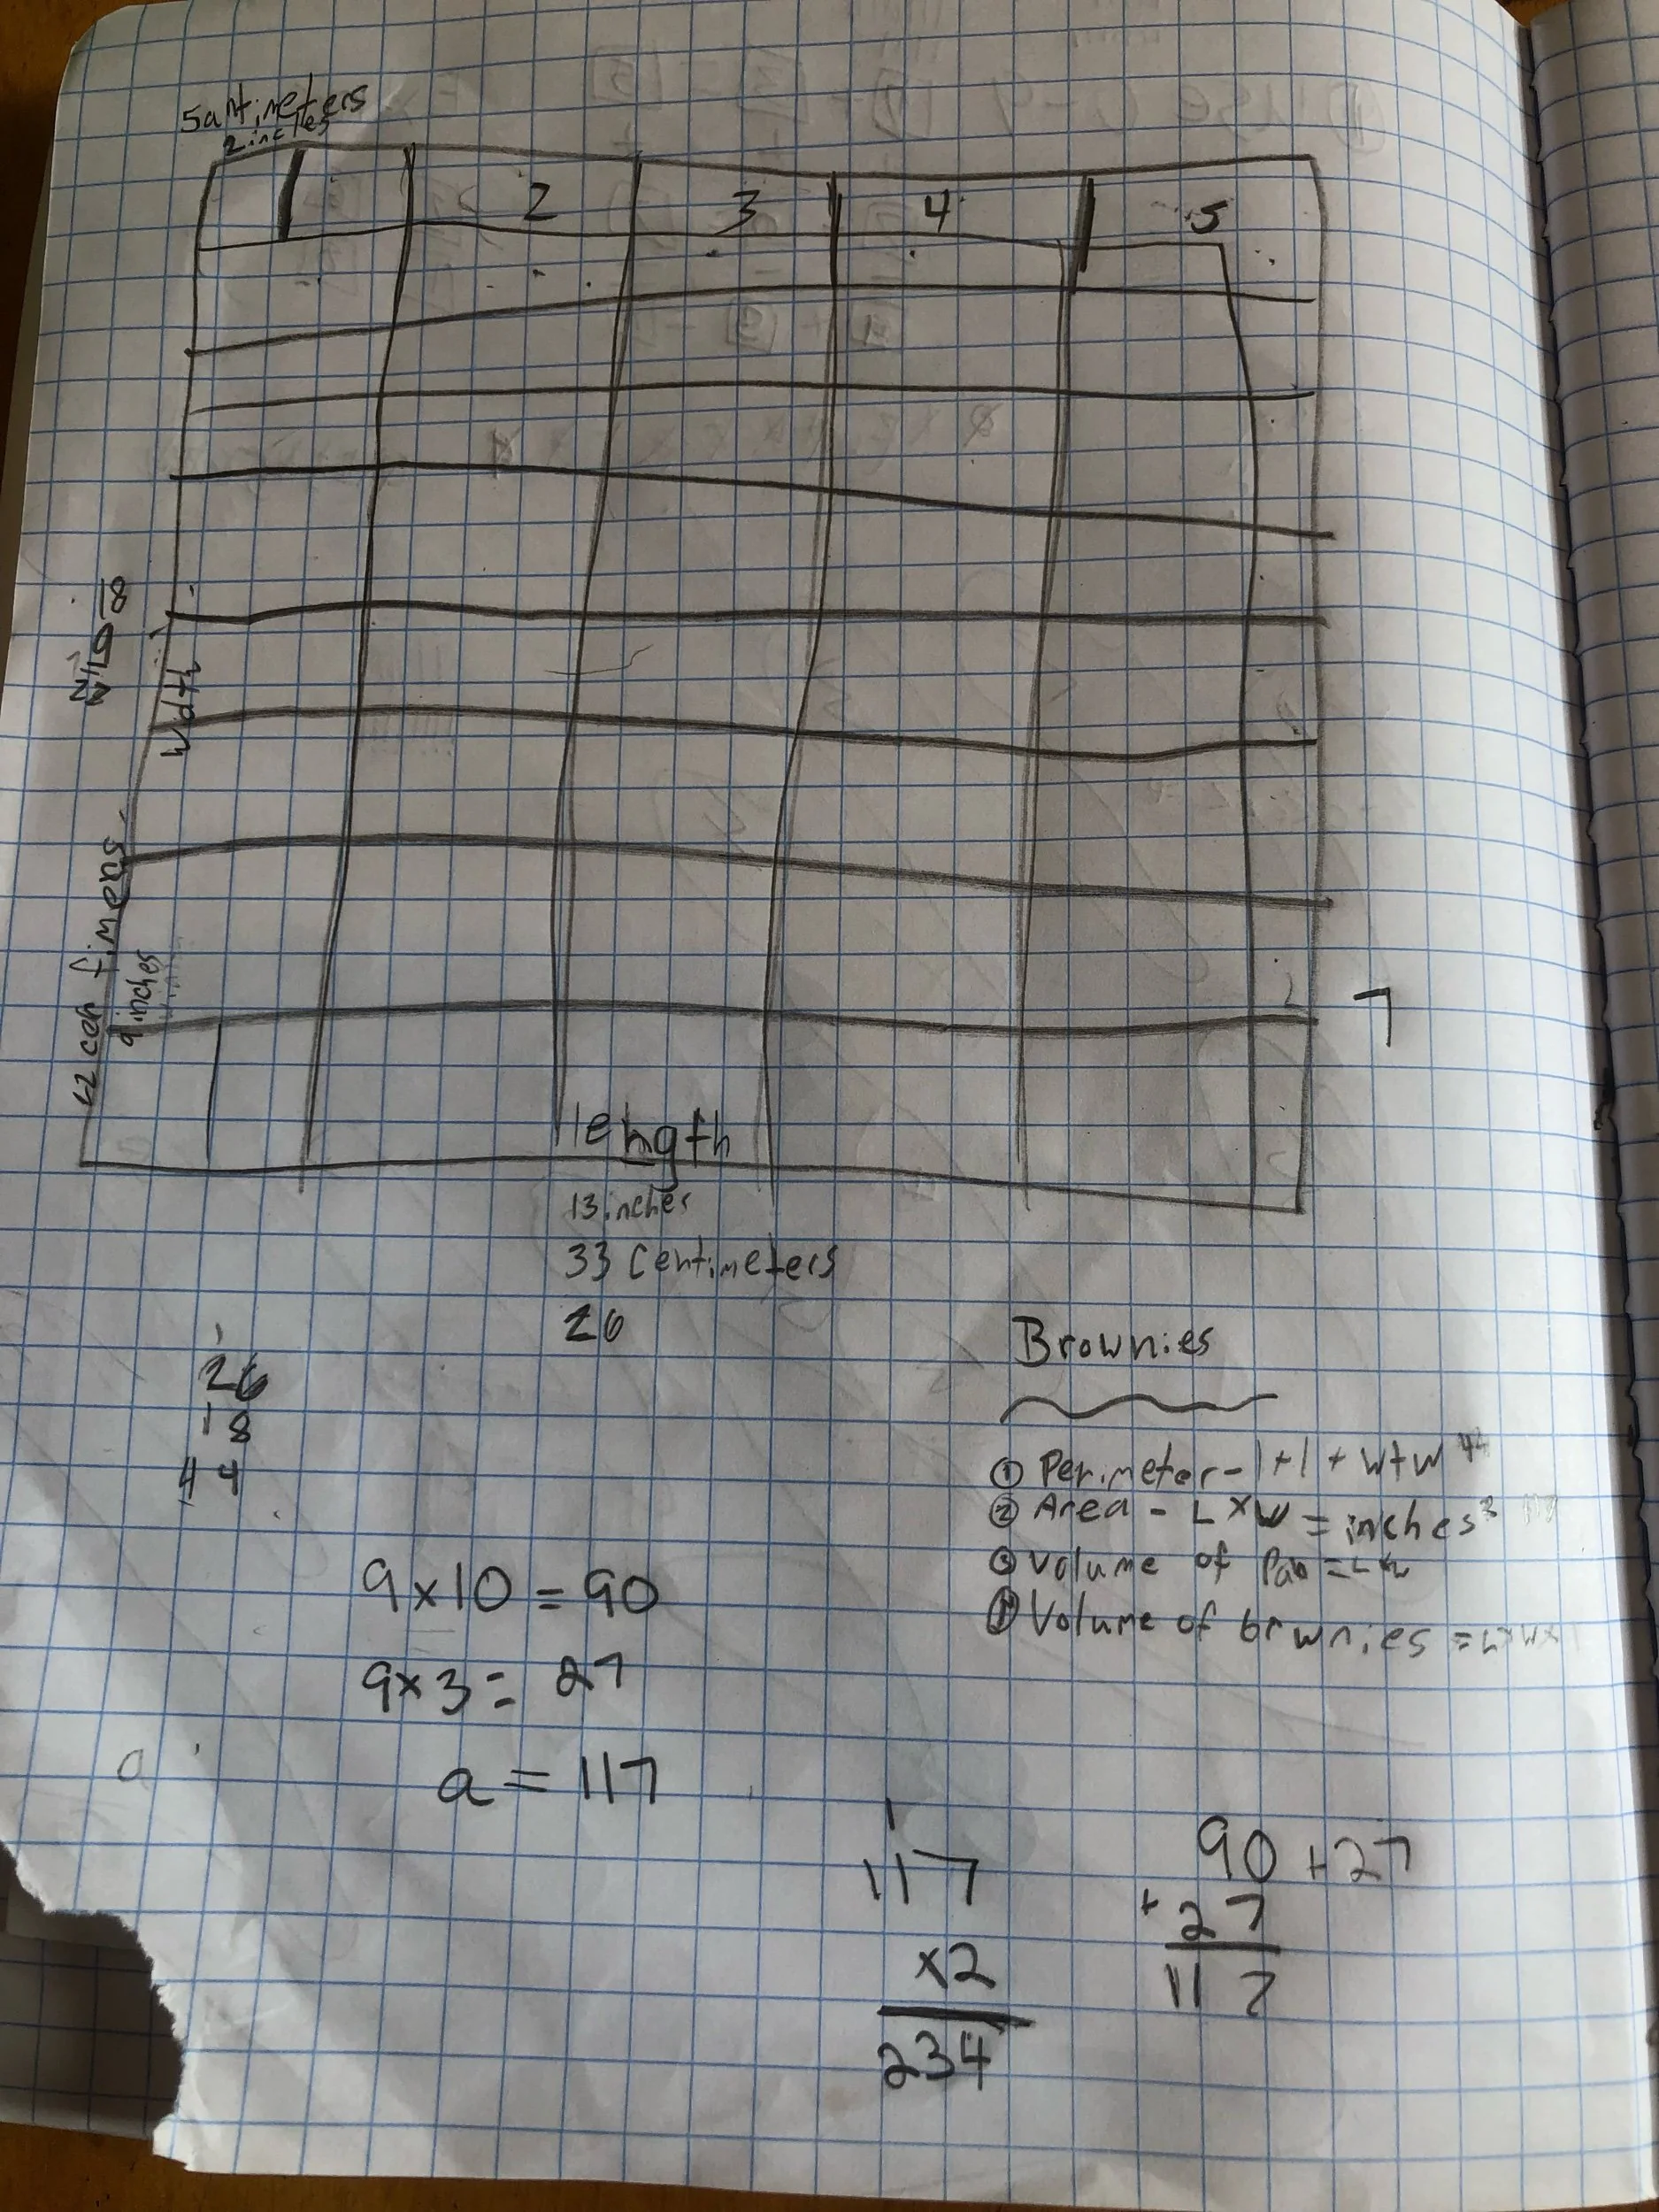 5antimeters
2 inches
1 2 3 4 5
18
width
22 centimeters
9 inches
7
length
13 inches
33 Centimeters
26
Brownies
1
26
18
44
① Perimeter - l+l + w+w 44
② Area - L×W = inches² 117
③ Volume of Pan =
④ Volume of brwnies = L×W×
9×10 = 90
9×3 = 27
a = 117
a
1
117
×2
234
90 +27
+27
117